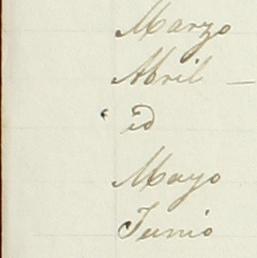 Marzo
Abril —
id
Mayo
Junio